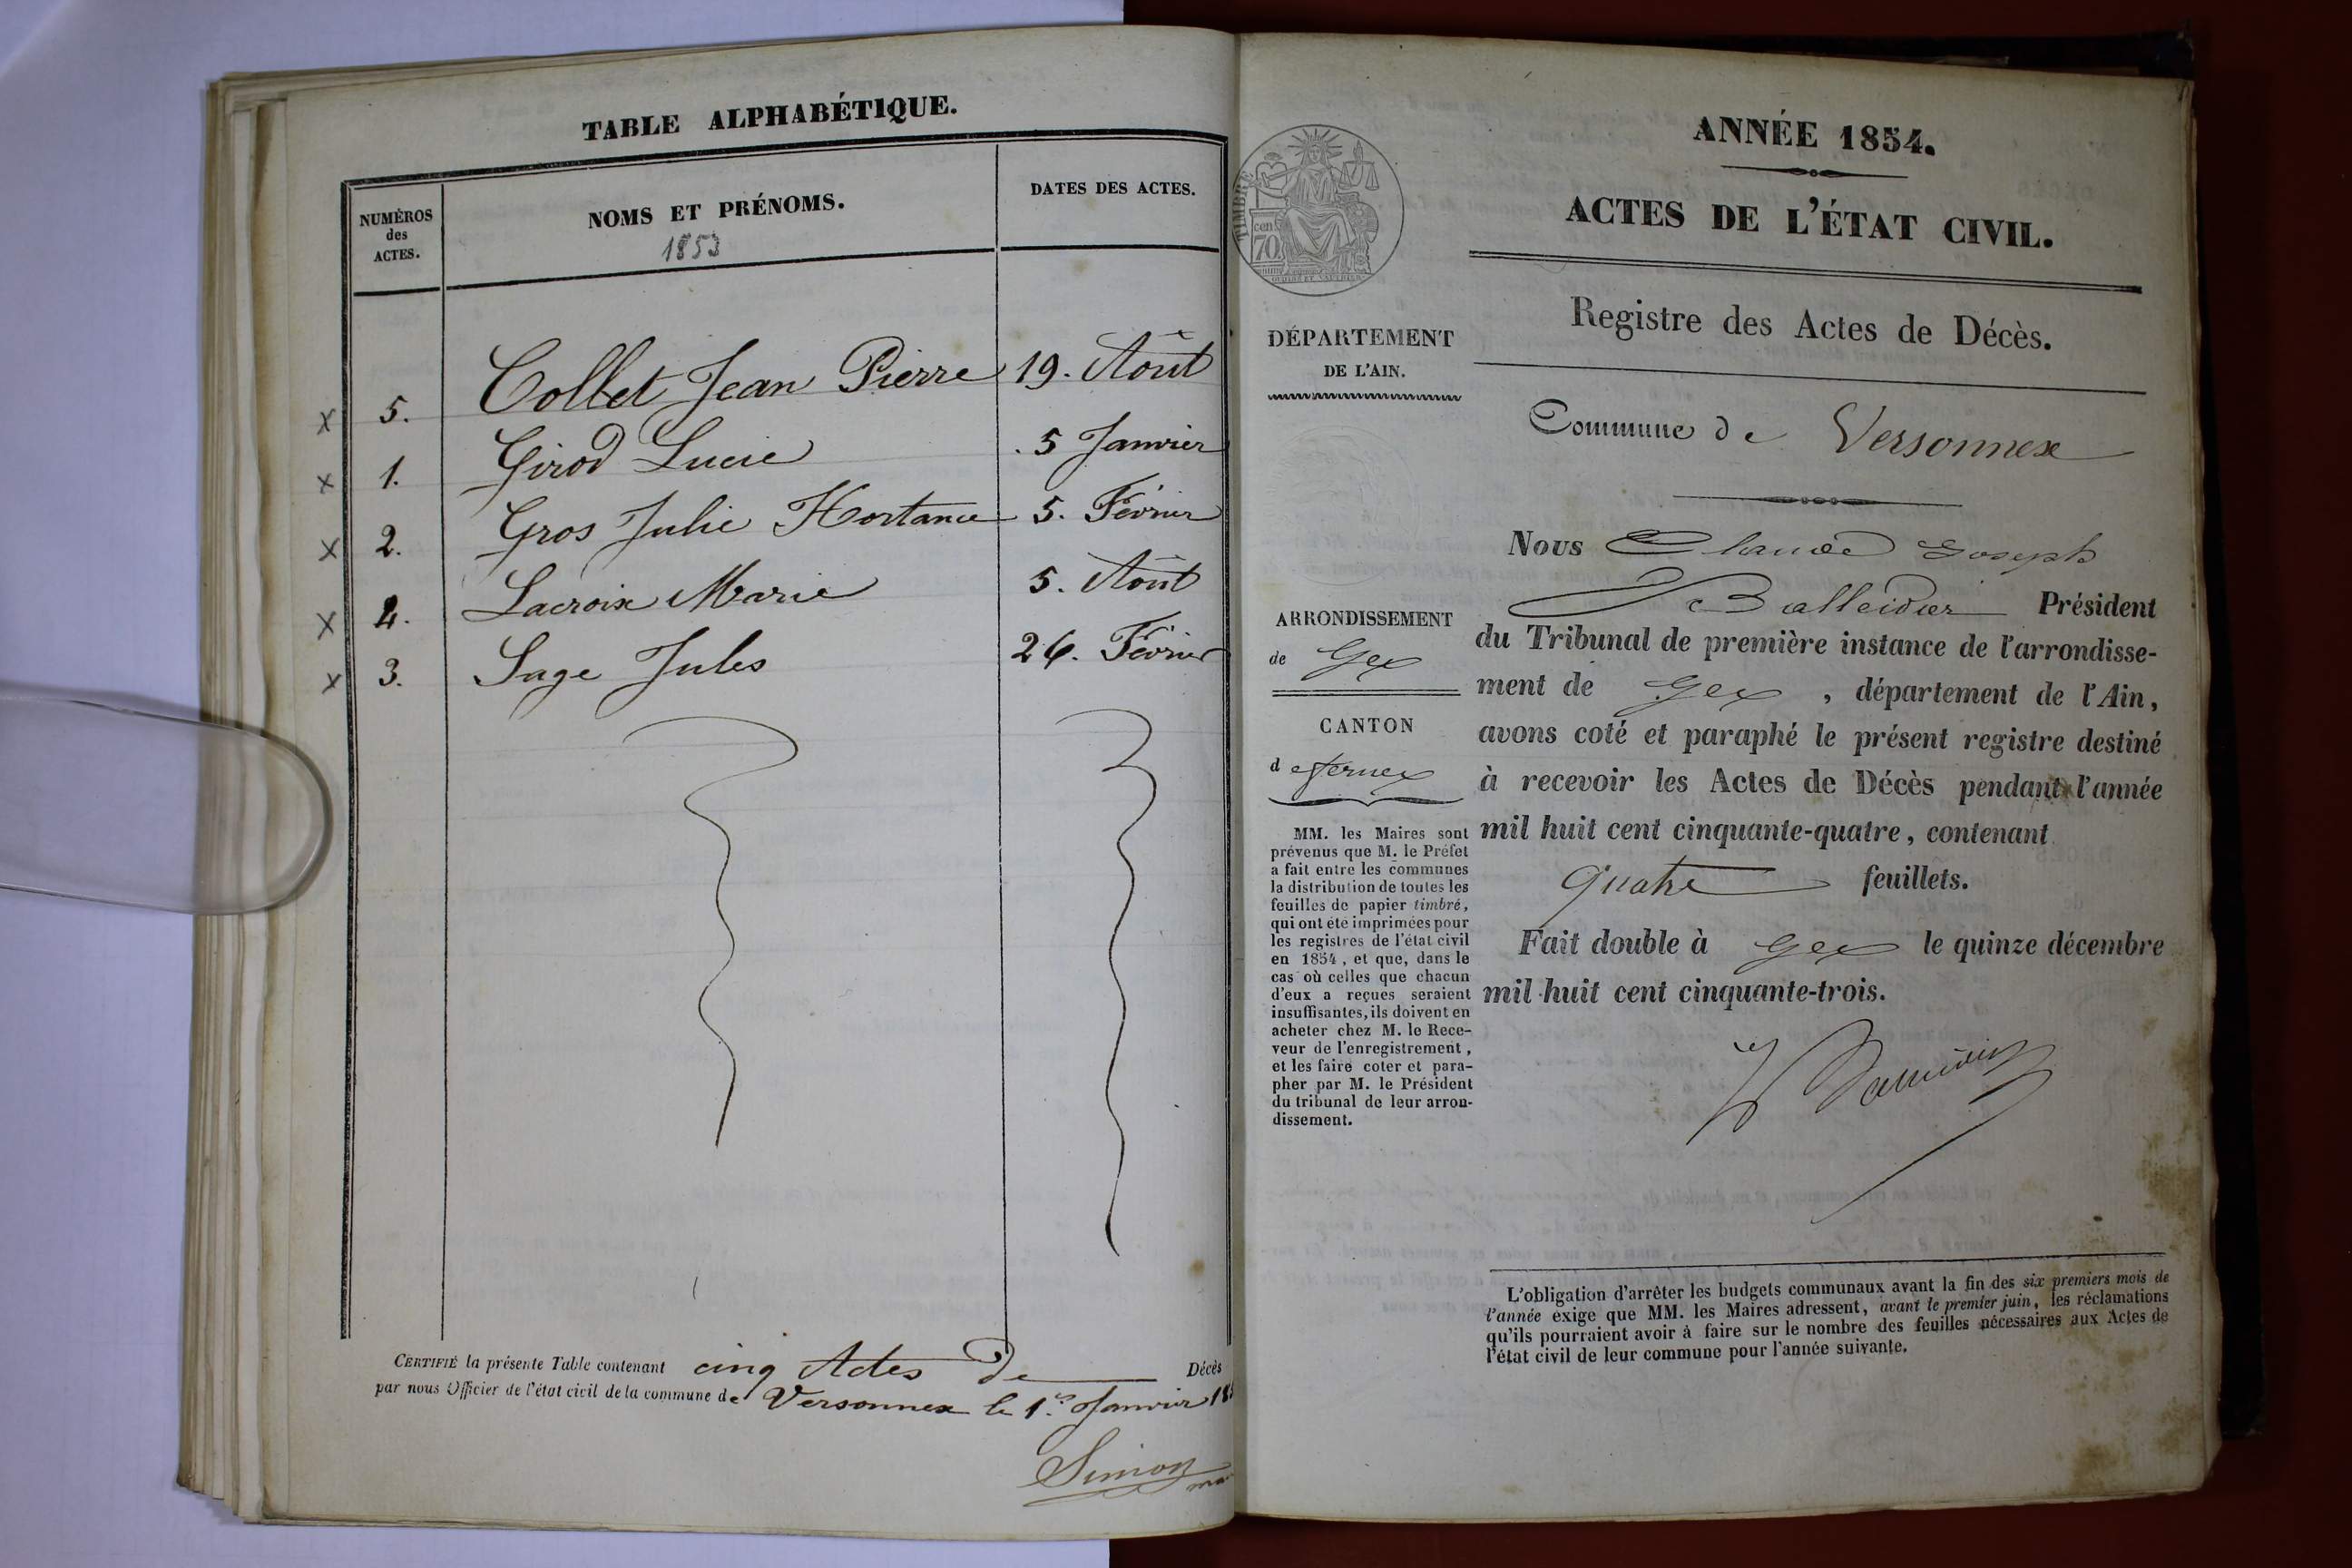 TABLE ALPHABÉTIQUE.
NUMÉROS
des
ACTES.
NOMS ET PRÉNOMS.
1853
DATES DES ACTES.
x 5. Collet Jean Pierre 19. Août
x 1. Girod Lucie 5 Janvier
x 2. Gros Julie Hortance 5. Février
x 4. Lacroix Marie 5. Août
x 3. Sage Jules 26. Février
CERTIFIÉ la présente Table contenant cinq Actes de Décès
par nous Officier de l'état civil de la commune de Versonnex le 1er Janvier 18
Simon
ANNÉE 1854.
ACTES DE L'ÉTAT CIVIL.
Registre des Actes de Décès.
Commune de Versonnex
TIMBRE
70 cen
DÉPARTEMENT
DE L'AIN.
ARRONDISSEMENT
de Gex
CANTON
de Fernex
MM. les Maires sont
prévenus que M. le Préfet
a fait entre les communes
la distribution de toutes les
feuilles de papier timbré,
qui ont été imprimées pour
les registres de l'état civil
en 1854, et que, dans le
cas où celles que chacun
d'eux a reçues seraient
insuffisantes, ils doivent en
acheter chez M. le Rece-
veur de l'enregistrement,
et les faire coter et para-
pher par M. le Président
du tribunal de leur arron-
dissement.
Nous Claude Joseph
Balleidier Président
du Tribunal de première instance de l'arrondisse-
ment de Gex, département de l'Ain,
avons coté et paraphé le présent registre destiné
à recevoir les Actes de Décès pendant l'année
mil huit cent cinquante-quatre, contenant
quatre feuillets.
Fait double à Gex le quinze décembre
mil huit cent cinquante-trois.
L'obligation d'arrêter les budgets communaux avant la fin des six premiers mois de
l'année exige que MM. les Maires adressent, avant le premier juin, les réclamations
qu'ils pourraient avoir à faire sur le nombre des feuilles nécessaires aux Actes de
l'état civil de leur commune pour l'année suivante.